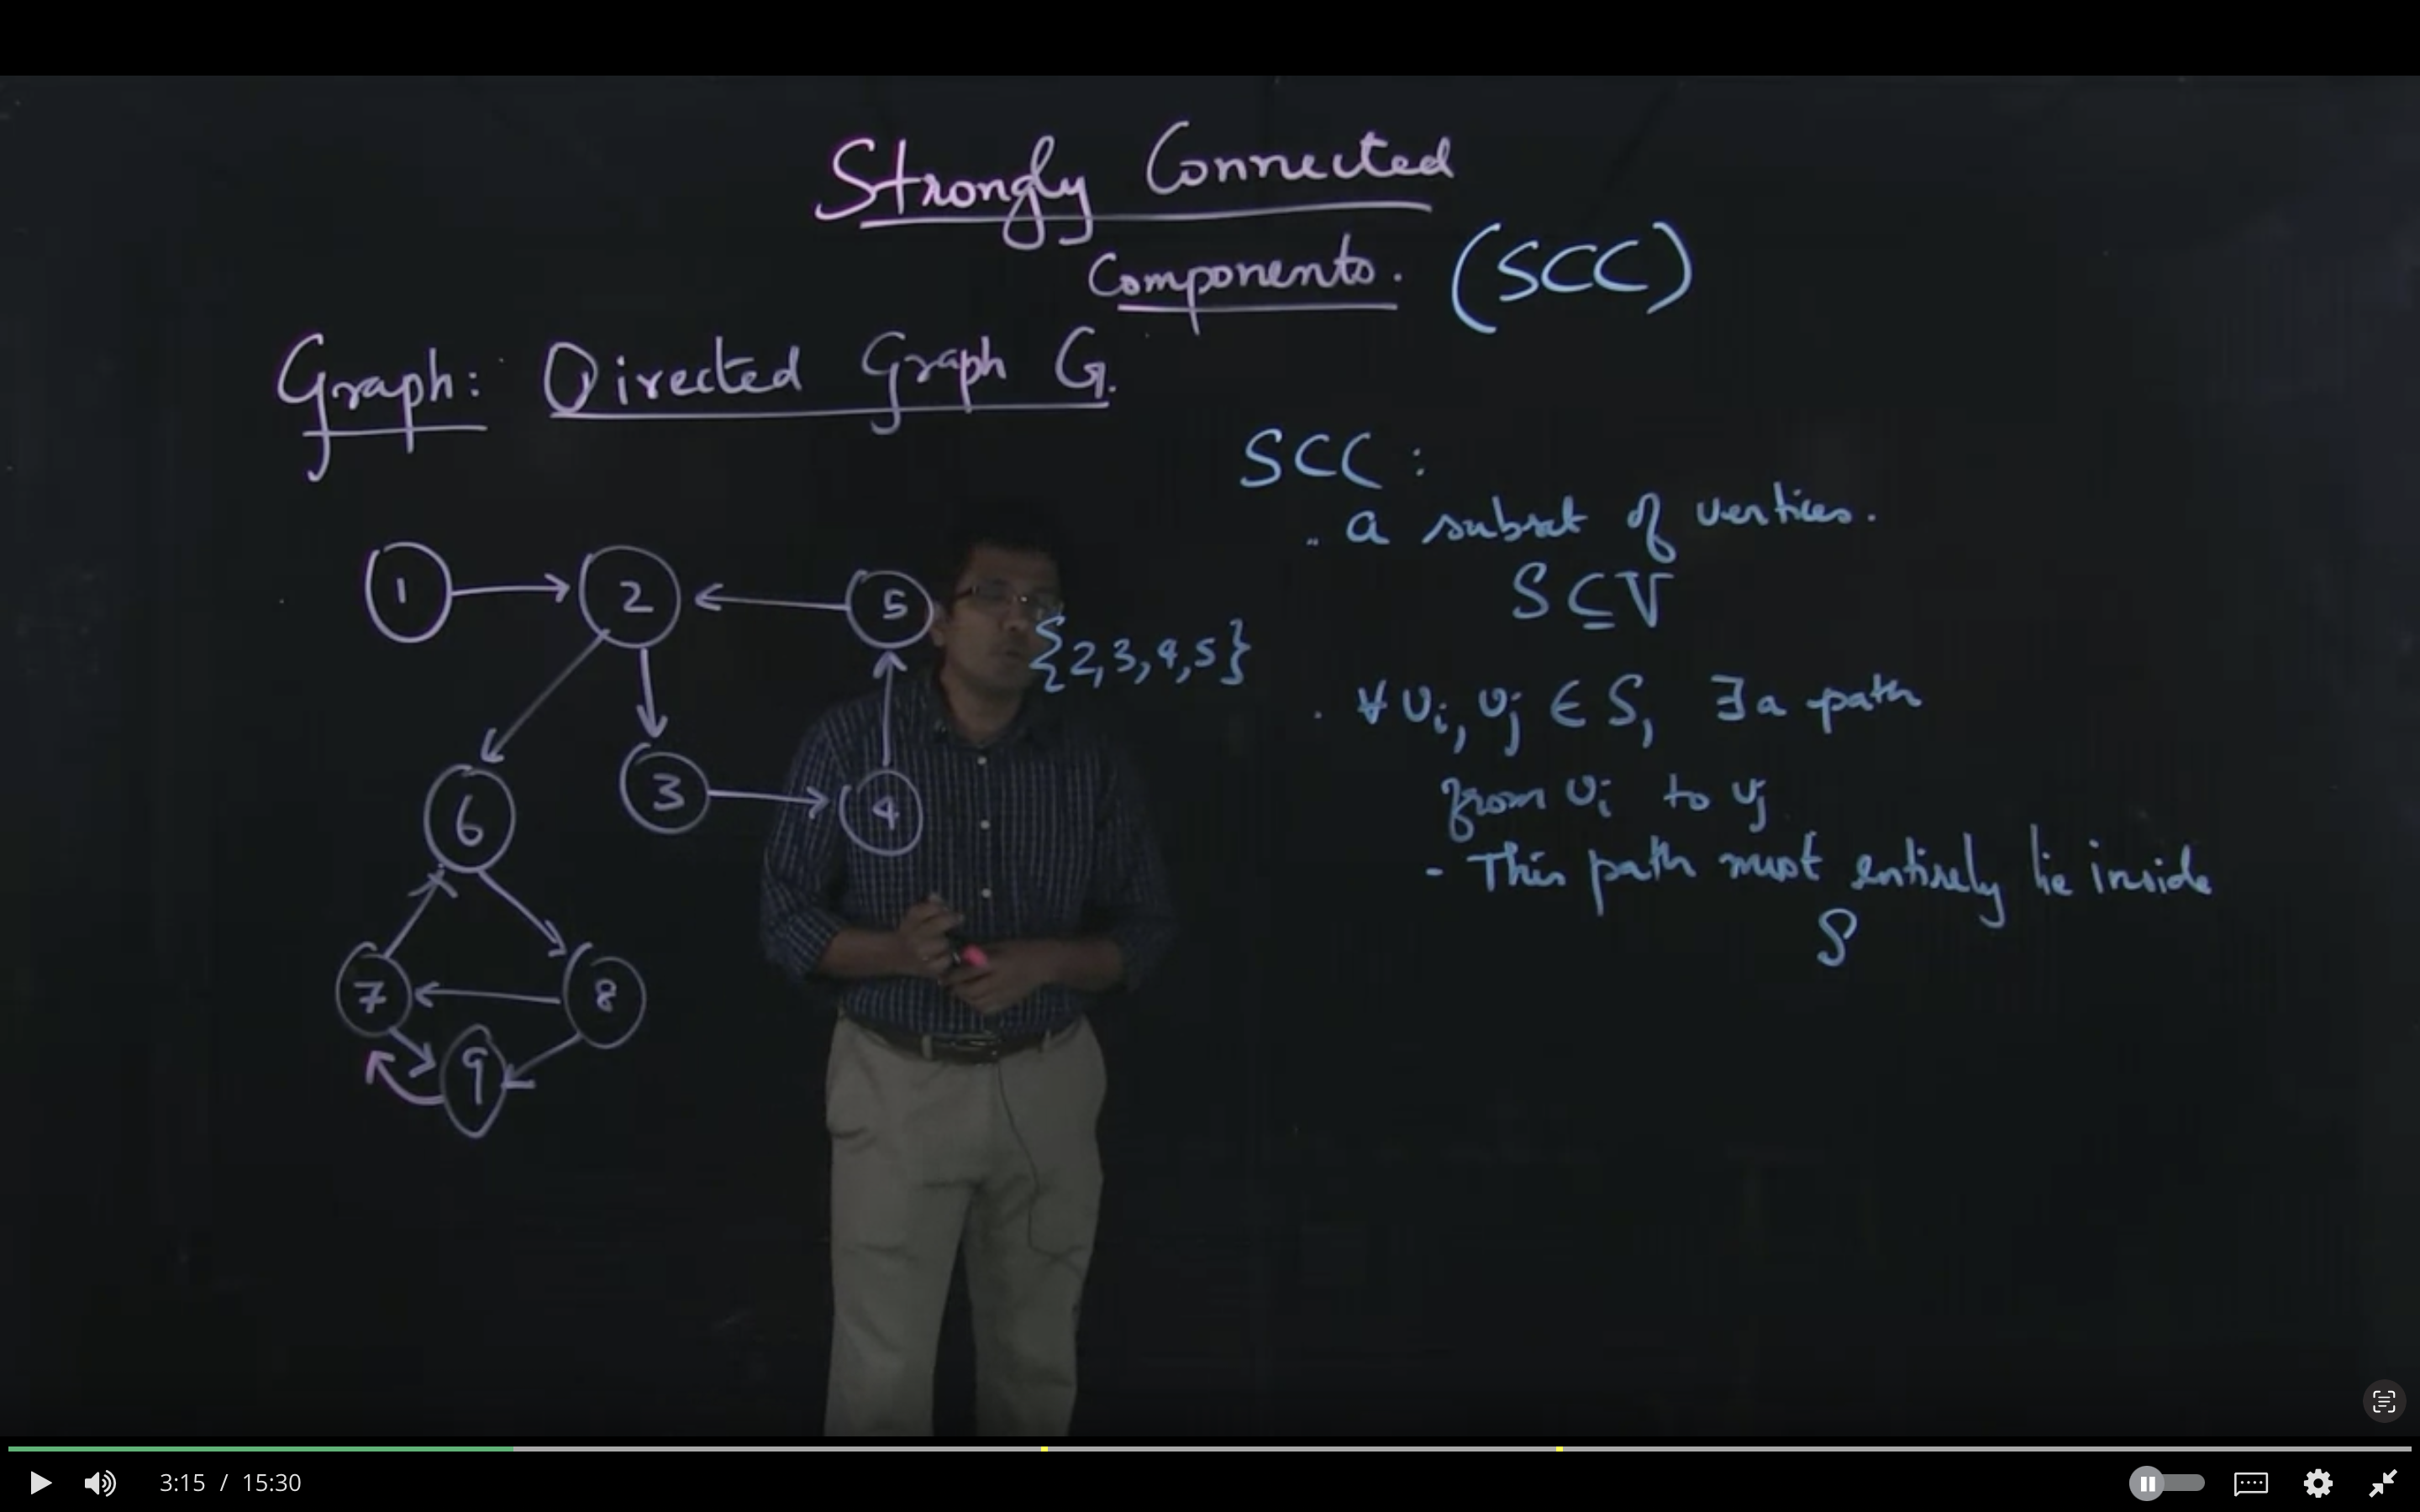 Strongly Connected
Components. (SCC)
Graph: Directed Graph G.
SCC:
a subset of vertices.
S ⊆ V
{2,3,4,5}
∀ vi, vj ∈ S, ∃ a path
from vi to vj
- This path must entirely lie inside
S
1
2
5
6
3
4
7
8
9
3:15 / 15:30